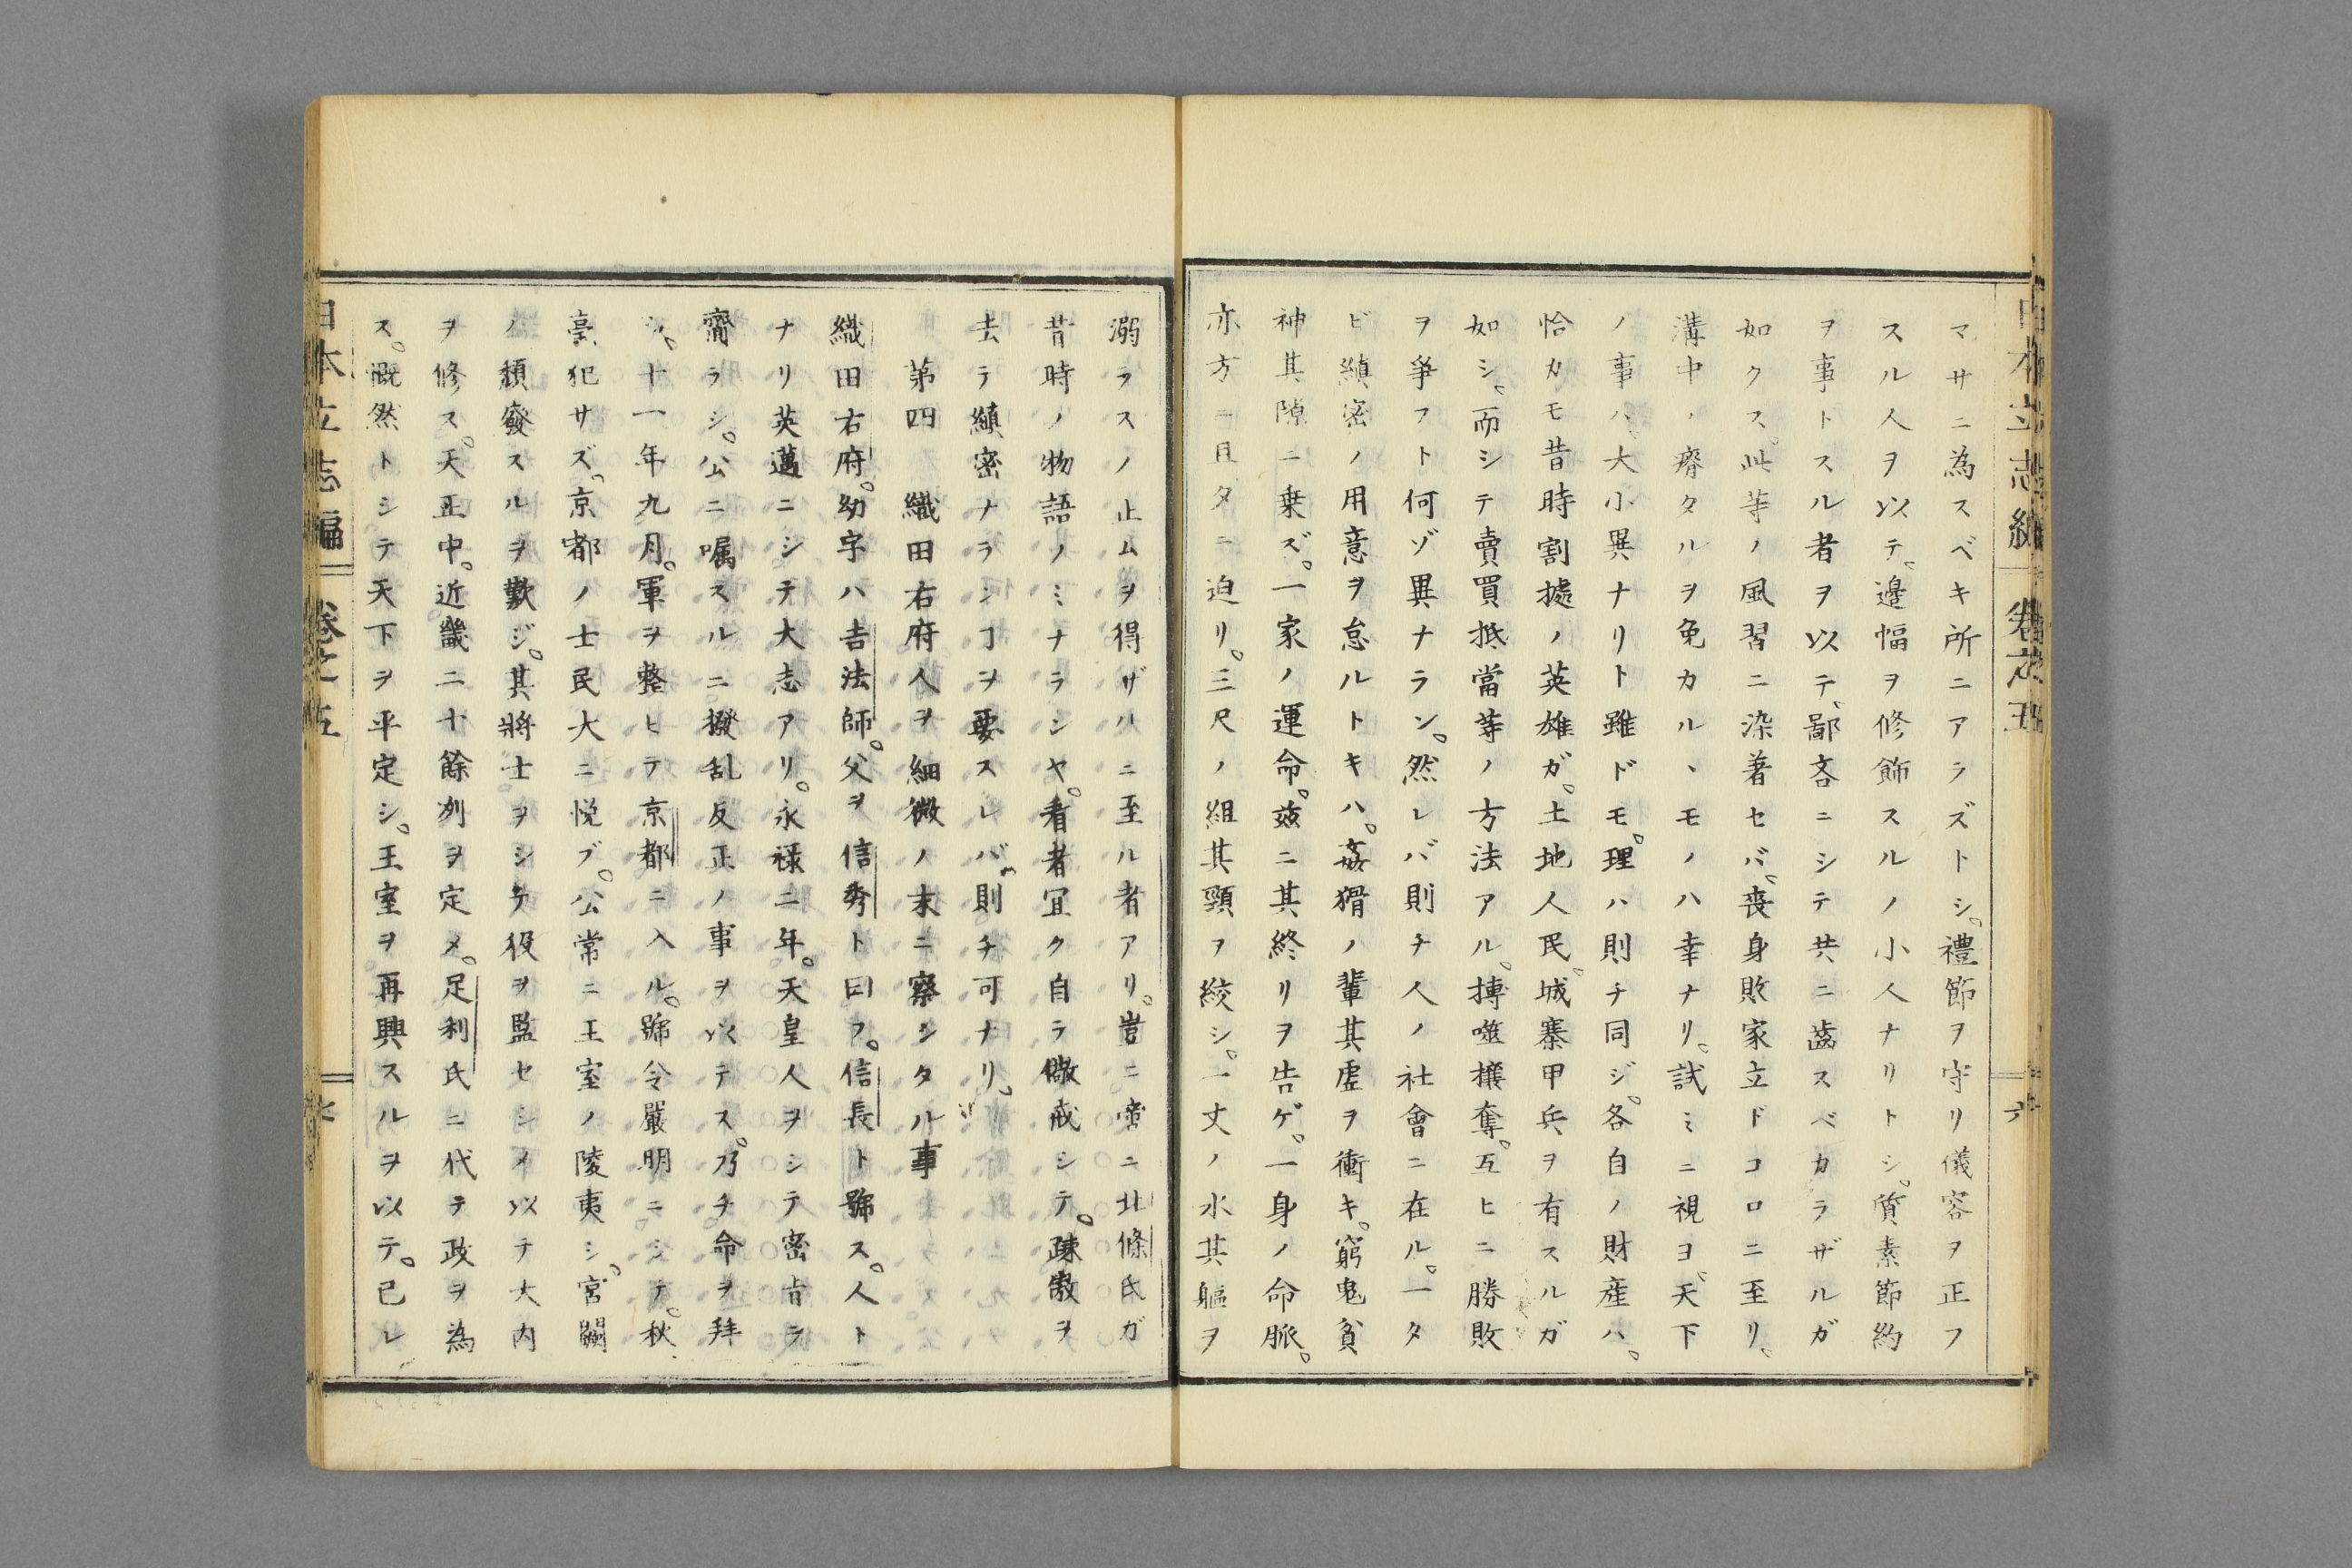 マサニ為スベキ所ニアラズトシ。禮節ヲ守リ儀容ヲ正フ
スル人ヲ以テ、邊幅ヲ修飾スルノ小人ナリトシ。質素節約
ヲ事トスル者ヲ以テ、鄙吝ニシテ共ニ齒スベカラザルガ
如クス。此等ノ風習ニ染著セバ、喪身敗家立ドコロニ至リ。
溝中ノ瘠タルヲ免カル、モノハ幸ナリ。試ミニ視ヨ、天下
ノ事ハ、大小異ナリト雖ドモ。理ハ則チ同ジ。各自ノ財産ハ。
恰カモ昔時割據ノ英雄ガ。土地人民。城寨甲兵ヲ有スルガ
如シ、而シテ賣買抵當等ノ方法アル。摶噬攘奪。互ヒニ勝敗
ヲ爭フト何ゾ異ナラン。然レバ則チ人ノ社會ニ在ル。一タ
ビ縝密ノ用意ヲ怠ルトキハ。姦猾ノ輩其虚ヲ衝キ。窮鬼貧
神其隙ニ乗ズ。一家ノ運命。茲ニ其終リヲ告ゲ。一身ノ命脈。
亦方ニ旦タニ迫リ。三尺ノ組其頸ヲ絞シ。一丈ノ水其軀ヲ
溺ラスノ止ムヲ得ザルニ至ル者アリ。豈ニ啻ニ北條氏ガ
昔時ノ物語ノミナラシヤ。看者宜ク自ラ儆戒シテ。疎嫩ヲ
去テ縝密ナラシヿヲ要スレバ。則チ可ナリ。
第四 織田右府人ヲ細微ノ末ニ察シタル事
織田右府。幼字ハ吉法師。父ヲ信秀ト曰フ。信長ト號ス。人ト
ナリ英邁ニシテ大志アリ。永禄二年。天皇人ヲシテ密旨ラ
齎ラシ。公ニ嘱スルニ撥乱反正ノ事ヲ以テス。乃チ命ヲ拜
シ。十一年九月。軍ヲ整ヒテ京都ニ入ル。號令嚴明ニシテ。秋
毫犯サズ。京都ノ士民大ニ悦ブ。公常ニ王室ノ陵夷シ。宮闕
ノ頽癈スルヲ歎ジ。其將士ヲシテ役ヲ監セシメ以テ大内
ヲ修ス。天正中。近畿二十餘州ヲ定メ。足利氏ニ代テ政ヲ為
ス。慨然トシテ天下ヲ平定シ。王室ヲ再興スルヲ以テ。已レ
日本立志編 卷之五